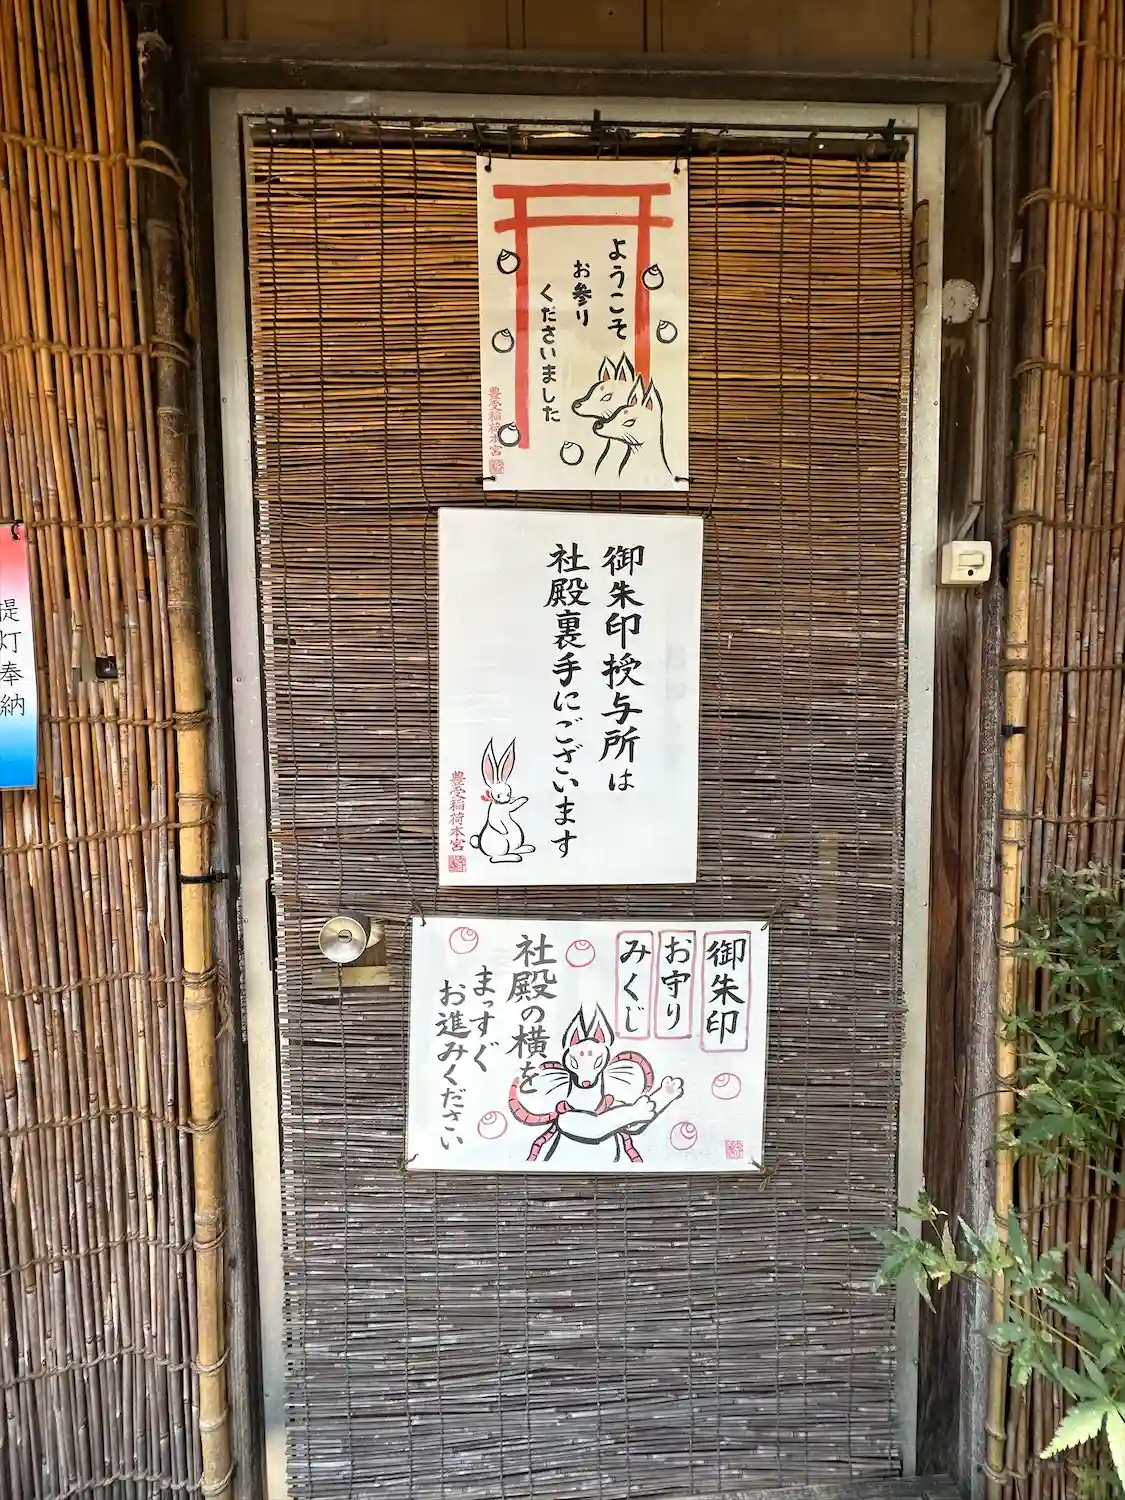 ようこそ
お参り
くださいました
豊受稲荷本宮
御朱印授与所は
社殿裏手にございます
豊受稲荷本宮
御朱印
お守り
みくじ
社殿の横を
まっすぐ
お進みください
提灯奉納